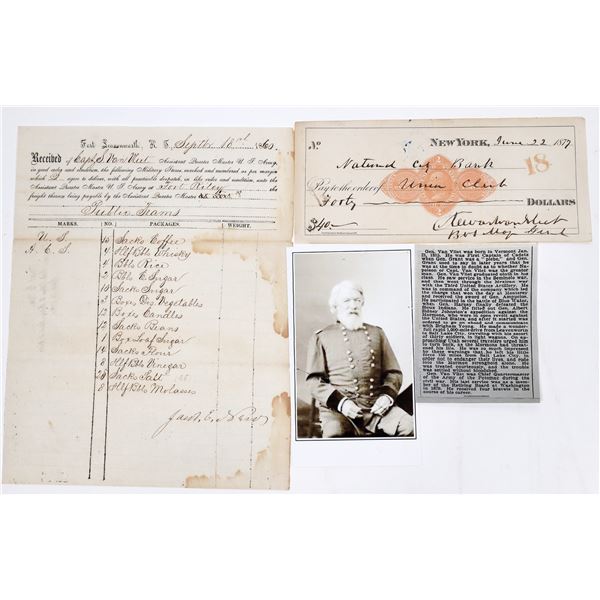 Fort Leavenworth, K. T. Septbr 13th 1860.
Received of Capt. S. Van Vliet Assistant Quarter Master U. S. Army,
in good order and condition, the following Military Stores, marked and numbered as per margin
which I agree to deliver, with all practicable despatch, in like order and condition, unto the
Assistant Quarter Master U. S. Army at Fort Riley
freight thereon being payable by the Assistant Quarter Master at
Public Teams
MARKS. NO. PACKAGES. WEIGHT.
U. S. Sacks Coffee
A. C. S. 4 Hlf Bbls Whisky
4 Bbls Rice
2 Bbls C. Sugar
Sacks Sugar
3 Boxes Veg. Vegetables
12 Boxes Candles
12 Sacks Beans
1 Bx Loaf Sugar
Sacks Flour
8 Hlf Bbls Vinegar
Sacks Salt
8 Hlf Bbls Molasses
No. NEW YORK, June 22 1877
National City Bank 18
Pay to the order of Union Club
Forty DOLLARS
$40- Stewart Van Vliet
Bvt Maj Genl
Gen. Van Vliet was born in Vermont Jan.
21, 1815. He was First Captain of Cadets
when Gen. Grant was a "plebe," and Gen.
Grant used to say in later years that he
was at the time in doubt as to whether Na-
poleon or Capt. Van Vliet was the greater
man. Gen. Van Vliet graduated ninth in his
class. He saw service in the Seminole war,
and then went through the Mexican war
with the Third United States Artillery. He
was in command of the company which led
the charge that won the day at Monterey
and received the sword of Gen. Ampudias.
He participated in the battle of Blue Water,
when Gen. Harney finally defeated the
Sioux Indians. He fitted out Gen. Albert
Sidney Johnston's expedition against the
Mormons, who were in open revolt against
the United States, and after it started was
ordered to go on ahead and communicate
with Brigham Young. He made a wonder-
ful rapid 1,200-mile drive from Leavenworth
to Salt Lake City, traveling with his escort
of thirty soldiers, in light wagons. On ap-
proaching Utah several travelers urged him
to turn back, as the Mormons had threat-
ened his life. He was so much impressed
by these warnings that he left his little
force 150 miles from Salt Lake City, in
order not to endanger their lives, and went
into the Mormon stronghold alone. He
was treated courteously, and the trouble
was settled without bloodshed.
Gen. Van Vliet was Chief Quartermaster
of the Army of the Potomac during the
civil war. His last service was as a mem-
ber of the Retiring Board at Washington
in 1879. He received four brevets in the
course of his career.